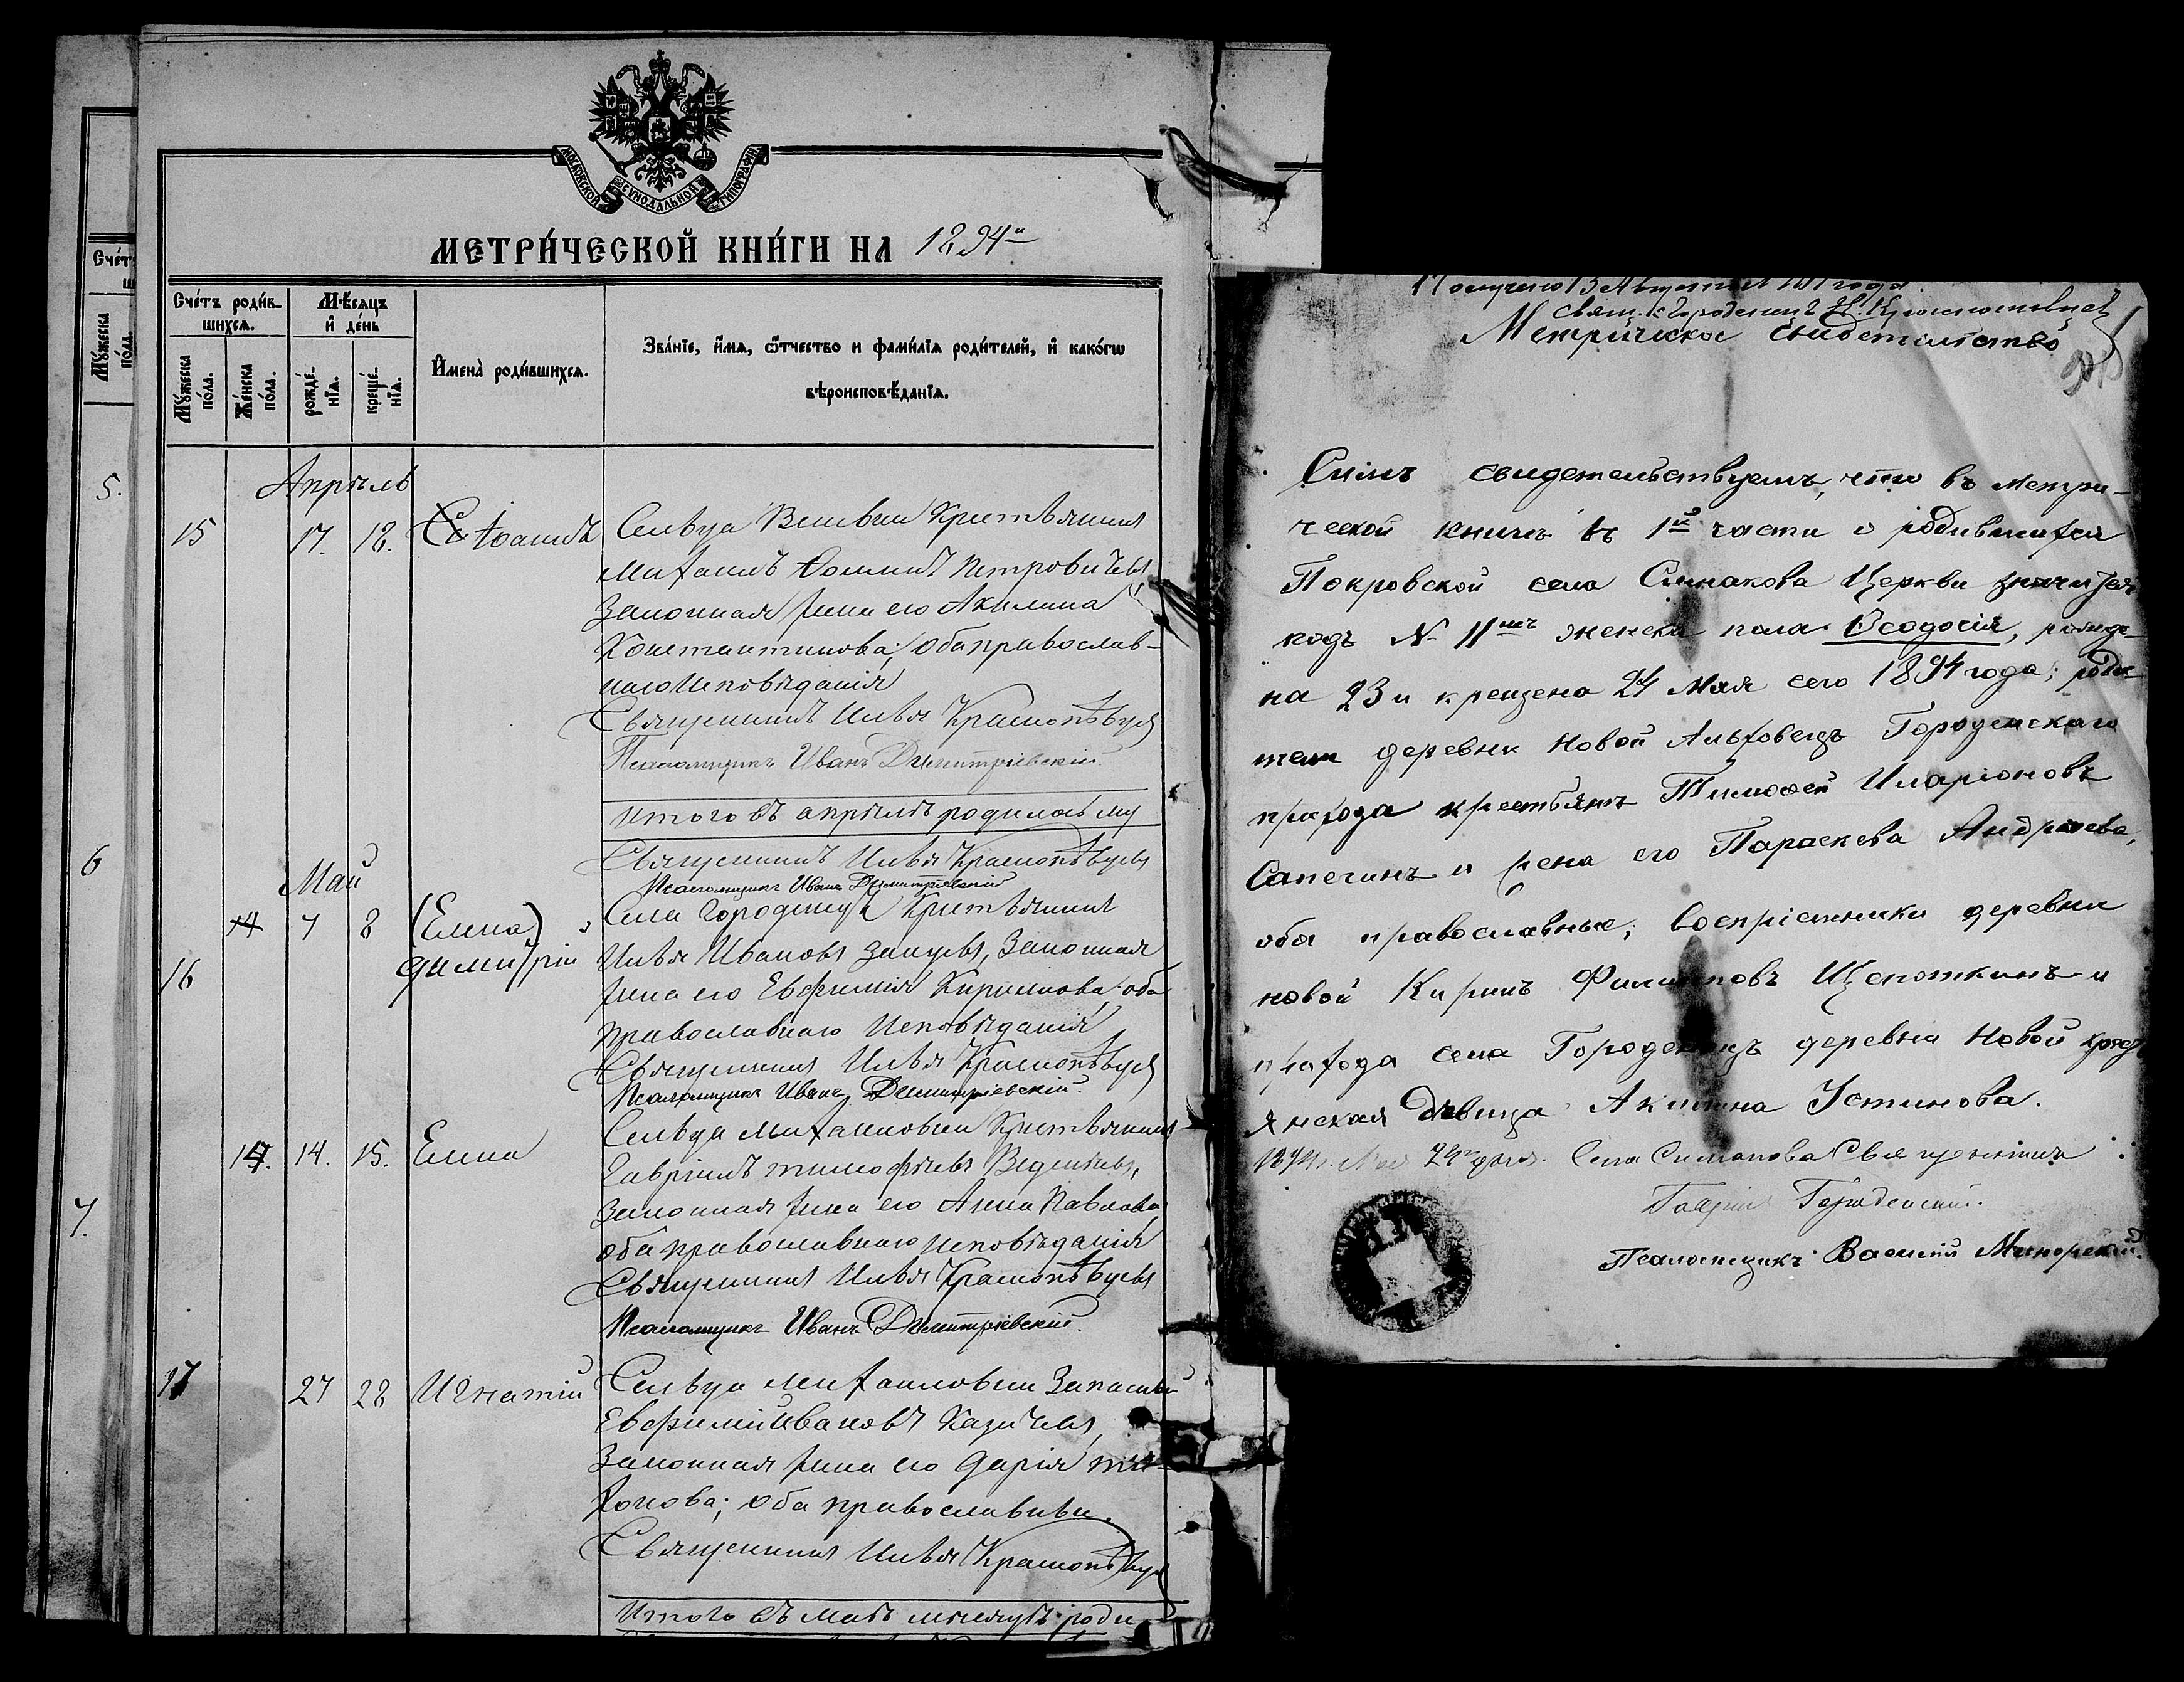 МОСКОВСКОЙ СѴНОДАЛЬНОЙ ТИПОГРАФІИ
МЕТРИ́ЧЕСКОЙ КНИ́ГИ НА 1894й
Сче́тъ роди́в-
шихся.
Мѣ́сяцъ
и҆ де́нь
Му́жеска
по́ла.
Же́нска
по́ла.
рожде́-
нїя.
креще́-
нїя.
И҆мена̀ роди́вшихся.
Зва́нїе, и҆́мя, ѻ҆́тчество и фами́лїя роди́телей, и҆ како́гѡ
вѣроисповѣ́данїя.
Счет
Му́жеска
по́ла.
5.
6
7.
Апрѣль
15 17. 18. Іоаннъ Сельца крестьянинъ
Михаилъ Петровичевъ
Законная жена его Акилина
Константинова; оба православ-
наго исповѣданія
Священникъ Илья Краснопѣвцевъ
Псаломщикъ Иванъ Димитріевскій.
Итого въ апрѣлѣ родилось му
Священникъ Илья Краснопѣвцевъ
Псаломщикъ Иванъ Димитріевскій
Май
14 7 8 (Елена) Села Городенецъ крестьянинъ
16 Димитрій Илья Ивановъ Законная
жена его Евфимія Кириллова оба
православнаго исповѣданія
Священникъ Илья Краснопѣвцевъ
Псаломщикъ Иванъ Димитріевскій.
14. 15. Елена Сельца Михаиловки крестьянинъ
Гавріилъ Тимофѣевъ
Законная жена его Анна Павлова
оба православнаго исповѣданія
Священникъ Илья Краснопѣвцевъ
Псаломщикъ Иванъ Димитріевскій.
17 27 28 Игнатій Сельца Михаиловки Запасный
Евфимій Ивановъ
Законная жена его Дарія Ти-
хонова; оба православныи.
Священникъ Илья Краснопѣвцевъ
Итого въ маѣ мѣсяцѣ роди
Получено 13 Августа года
Свящ. с. Городенецъ И. Краснопѣвцевъ
Метрическое свидетельство
Симъ свидетельствуемъ, что въ метри-
ческой книгѣ въ 1й части о родившихся
Покровской села Симакова Церкви значится
подъ № 11мъ женска пола Ѳеодосія, рожде-
на 23 и крещена 24 Мая сего 1894 года; роди
тели деревни Новой Городенскаго
прихода крестьянъ Тимоѳей Иларіоновъ
Сапегинъ и жена его Параскева Андреева,
оба православные; Воспріемники деревни
новой Кирилъ Филиповъ Щепоткинъ и
прихода села Городенецъ деревни Новой крест
янская девица Акилина Устинова.
1894 г. Мая 24го дня. Села Симакова Священникъ
Гавріилъ Городенский.
Псаломщикъ Василій Минорский.